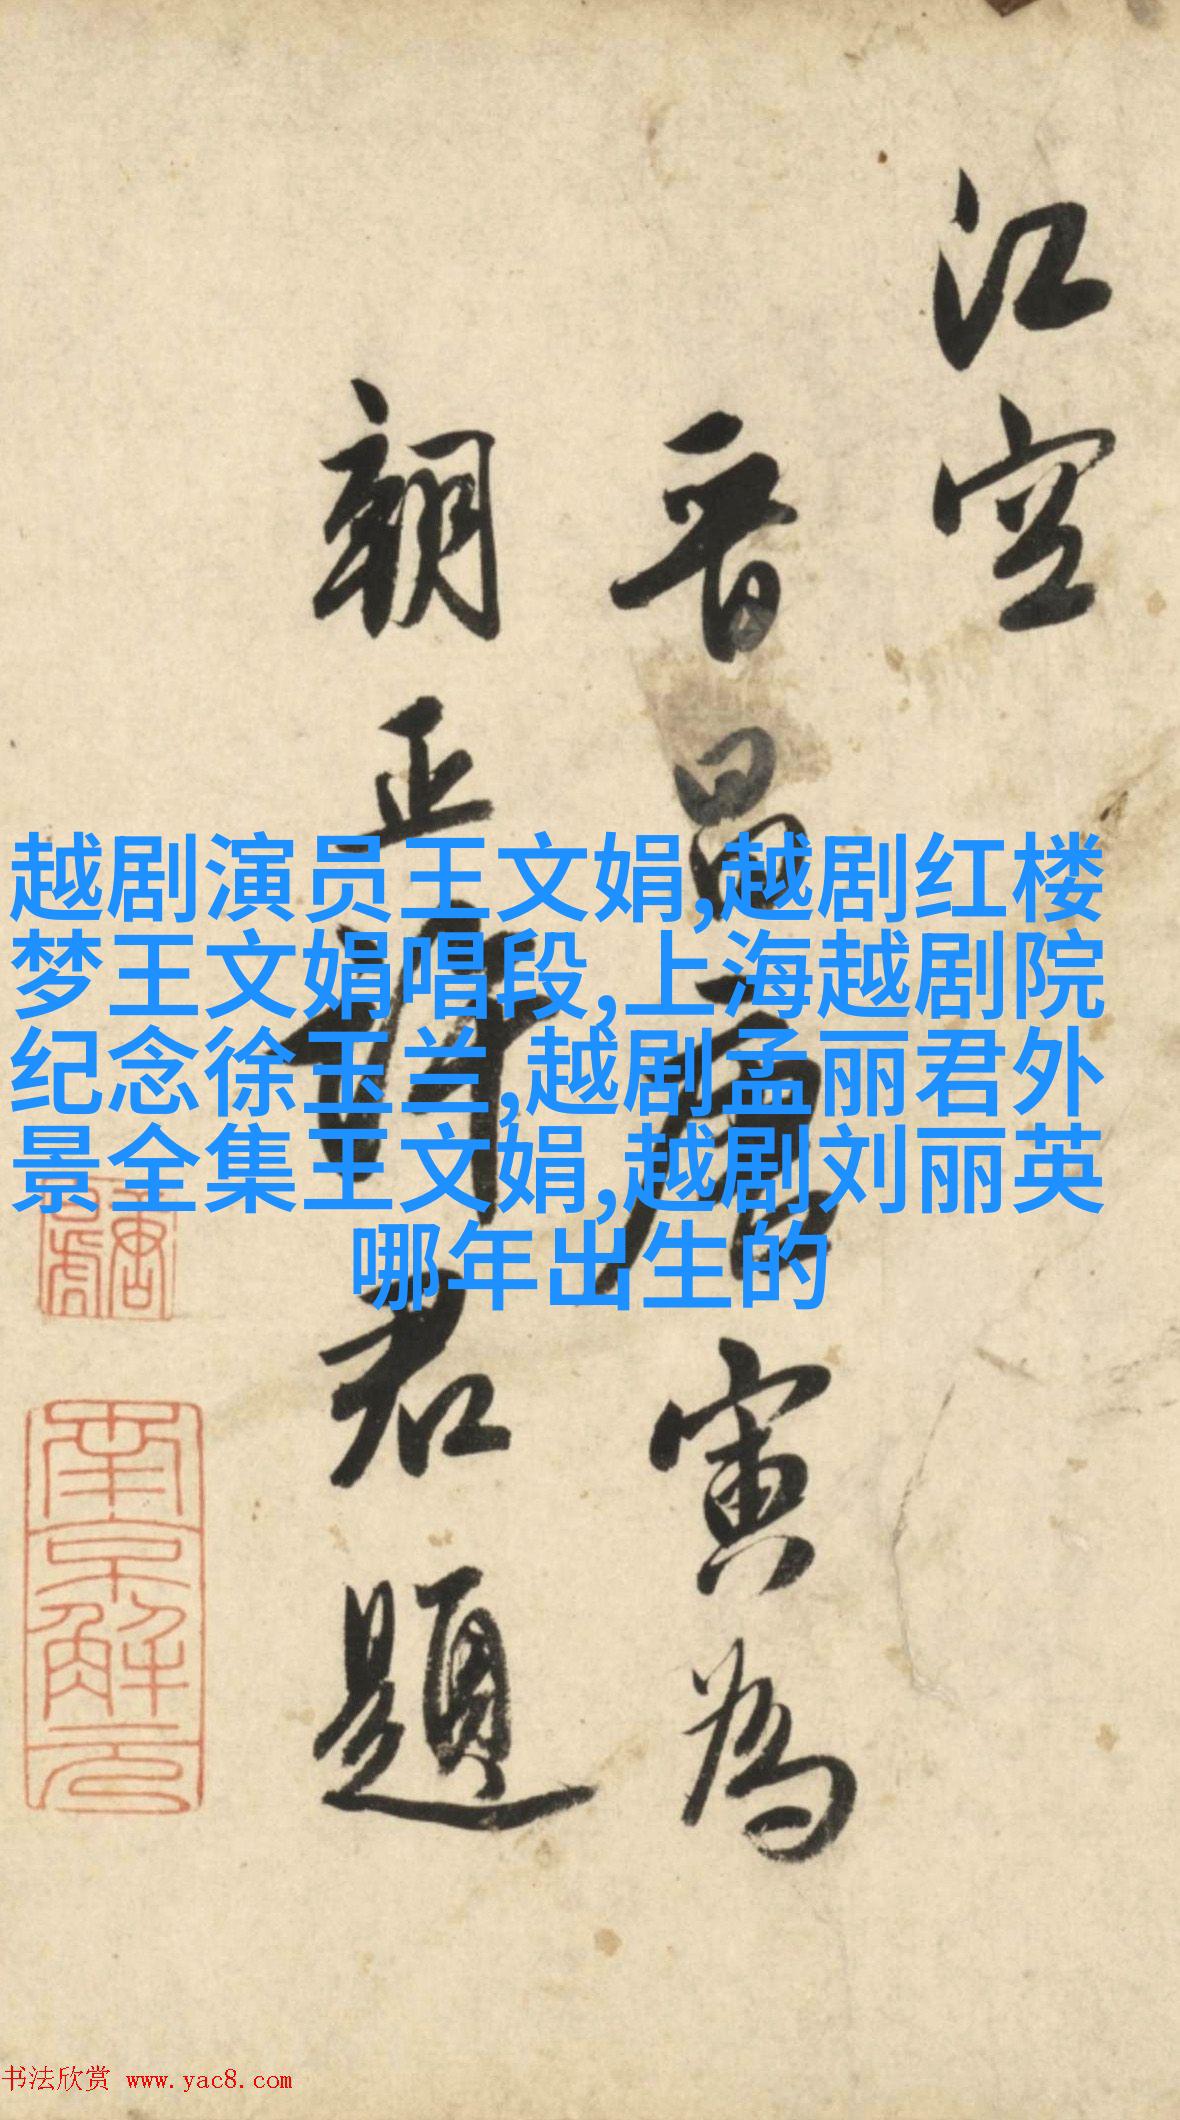 江空
晋昌唐寅為
朝正許君題
越剧演员王文娟,越剧红楼
梦王文娟唱段,上海越剧院
纪念徐玉兰,越剧孟丽君外
景全集王文娟,越剧刘丽英
哪年出生的
南京解元
书法欣赏 www.yac8.com